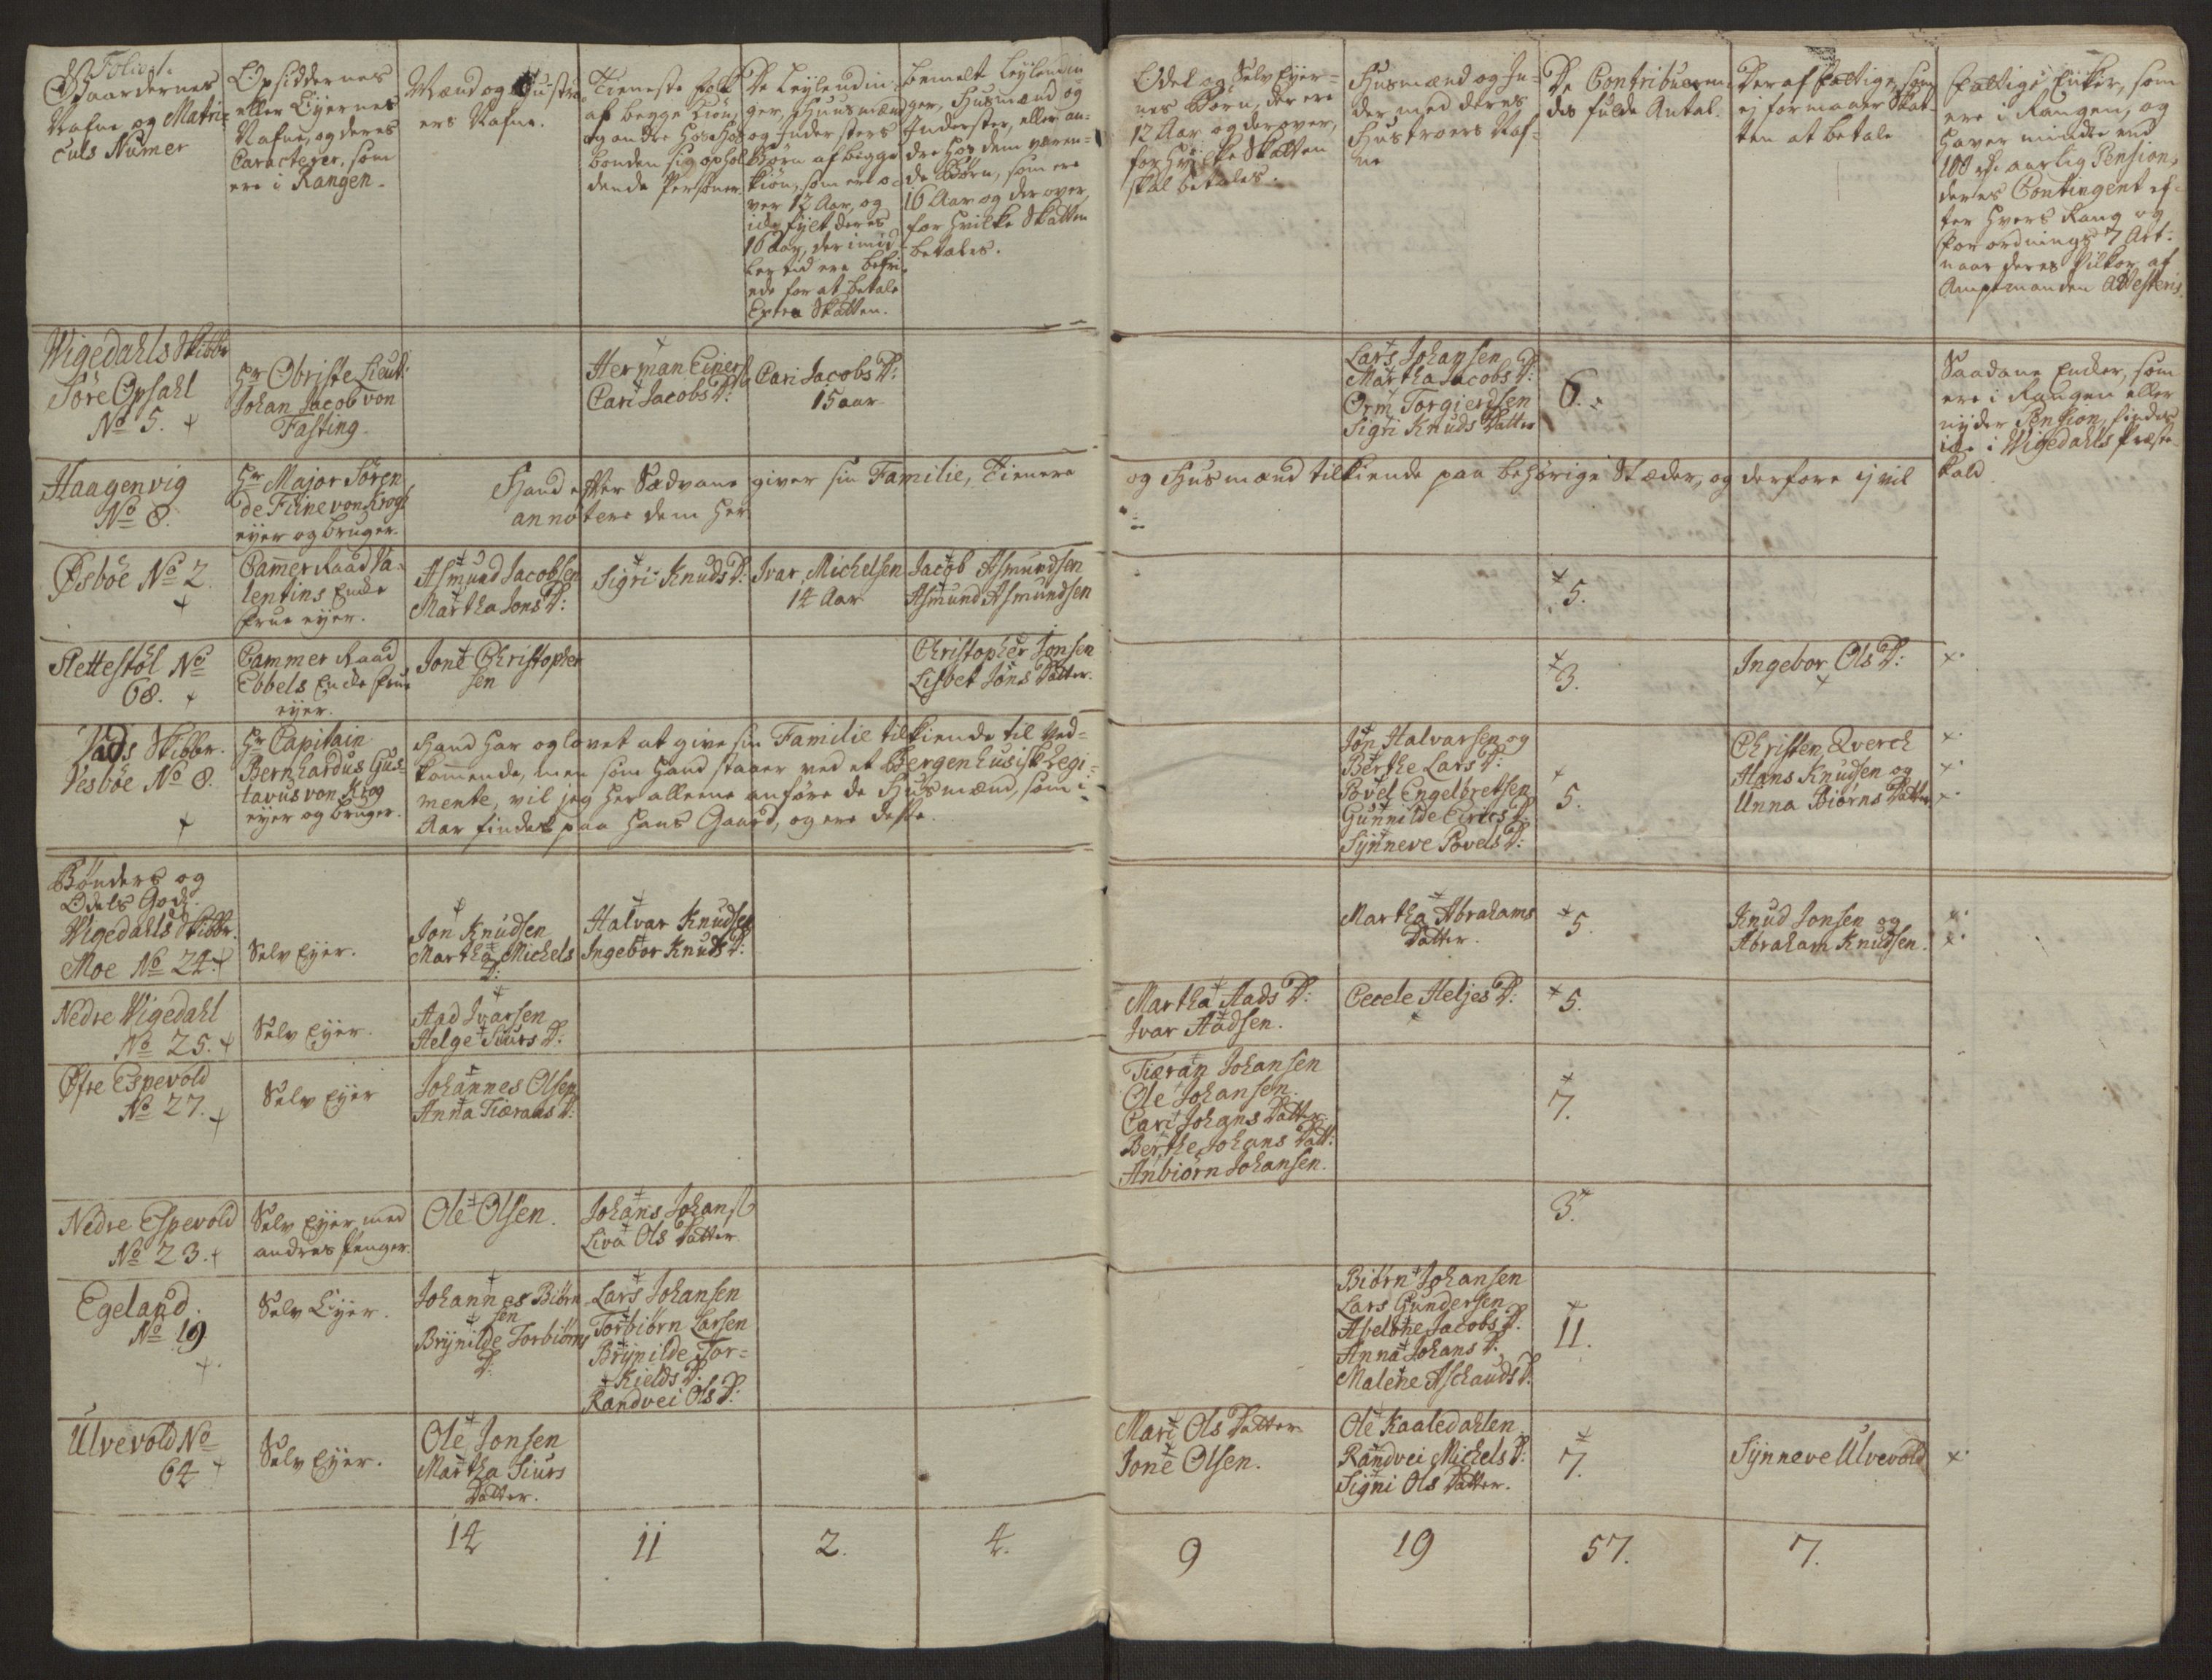 Folio 1.
Gaardernes
Nafne og Matri-
culs Numer
Opsiddernes
eller Eyernes
Nafne, og deres
Caracterer, som
ere i Rangen.
Mænd og Hustru-
ers Nafne.
Tieneste folk
af begge Kiön,
og andre hos Hos-
bonden sig ophol-
dende Personer
De Leylendin-
ger, Huusmænd
og Indersters
Börn af begge
Kiön, som ere o-
ver 12 Aar, og
icke fylt deres
16 Aar, der imid-
ler tid ere befri-
ede for at betale
Extra Skatten.
bemelt Leylendin-
ger, Husmænd og
Inderster, eller an-
dre hos dem væren-
de Börn, som ere
16 Aar og derover
for hvilke Skatten
betales.
Odel og Selv Eyer-
nes Börn, der ere
12 Aar og derover,
for hvilke Skatten
skal betales.
Husmænd og In-
der med deres
Hustroers Naf-
ne
De Contribueren-
des fulde Antal.
Der af fattige, som
ej formaaer Skat-
ten at betale
Fattige Enker, som
ere i Rangen, og
haver mindre end
100 rd. aarlig Pension,
deres Contingent ef-
ter hvers Rang og
forordnings 7 Art:
naar deres Vilkor af
Amptmanden Attesteris.
Wigedahls Skibbr
Söre Opsahl
No 5.
Hr Obriste Lieut:
Johan Jacob von
Fasting.
Herman Einers
Cari Jacobs D:
Cari Jacobs D:
15 aar
Lars Johansen
Martha Jacobs D:
Orm Torgiersen
Sigri Knuds Datter
6.
Saadane Enker, som
ere i Rangen eller
nyder Pention, findes
icke i Wigedahls Præste
kald.
Haagenvig
No 8.
Hr Major Sören
de Fine von Krogh
eyer og bruger.
Hand efter Sædvane giver sin Familie, Tienere og Husmænd tilkiende paa behörige Stæder, og derfore ej vil
annotere dem her
Øsböe No 2
Cammer Raad Va-
lentins Enke
Frue eyer.
Asmund Jacobsen
Martha Jons D:
Sigri Knuds D:
Ivar Michelsen
14 Aar
Jacob Asmundsen
Asmund Asmundsen
5.
Slettestöl No
68.
Cammer Raad
Ebbels Encke frue
eyer.
Jone Christopher
sen
Christopher Jonsen
Lisbet Jons Datter.
3.
Ingebor Ols D:
Vads Skibbr.
Vesböe No 8.
Hr Capitain
Bernhardus Gus-
tavus von Krog
eyer og bruger.
Hand har og lovet at give sin Familie tilkiende til Ved-
kommende, men som hand staaer ved et Bergenhusisk Regi-
mente, vil jeg her alleene anföre de Husmænd, som i
Aar findes paa hans Gaard, og ere deste.
Jon Halvarsen og
Berthe Lars D:
Povel Engelbretsen
Gunnilde Eirics D:
Synneve Povels D:
5.
Christen Qverch
Hans Knudsen og
Unna Biörns Datter
Bönders og
Odels Gods.
Wigedahls Skibbr.
Moe No 24.
Selv Eyer.
Jon Knudsen
Martha Michels
D:
Halvar Knudsen
Ingebor Knuds D:
Martha Abrahams
Datter.
5.
Knud Jonsen og
Abraham Knudsen.
Nedre Wigedahl
No 25.
Selv Eyer.
Aad Ivarsen
Helge Siurs D:
Martha Aads D:
Ivar Aadsen.
Cecele Heljes D:
5.
Øfre Espevold
No 27.
Selv Eyer
Johannes Olsen
Anna Tiærans D:
Tiæran Johansen
Ole Johansen.
Cari Johans Datter.
Berthe Johans Datt:
Anbiörn Johansen.
7.
Nedre Espevold
No 23.
Selv Eyer med
andres penger.
Ole Olsen.
Johans Johans
Liva Ols Datter.
3.
Egeland.
No 19
Selv Eyer.
Johannes Biörn
sen
Brynilde Torbiörns
D:
Lars Johansen
Torbiörn Larsen
Brynilde Tor-
kields D:
Randvei Ols D:
Biörn Johansen
Lars Gundersen
Abelone Jacobs D:
Anna Johans D:
Malene Aschauds D:
11.
Ulvevold No
64
Selv Eyer.
Ole Jonsen
Martha Siurs
Datter.
Mari Ols Datter
Jone Olsen.
Ole Kaaledahlen
Randvei Michels D:
Signi Ols Datter.
7.
Synneve Ulvevold
14
11
2.
4.
9
19
57.
7.